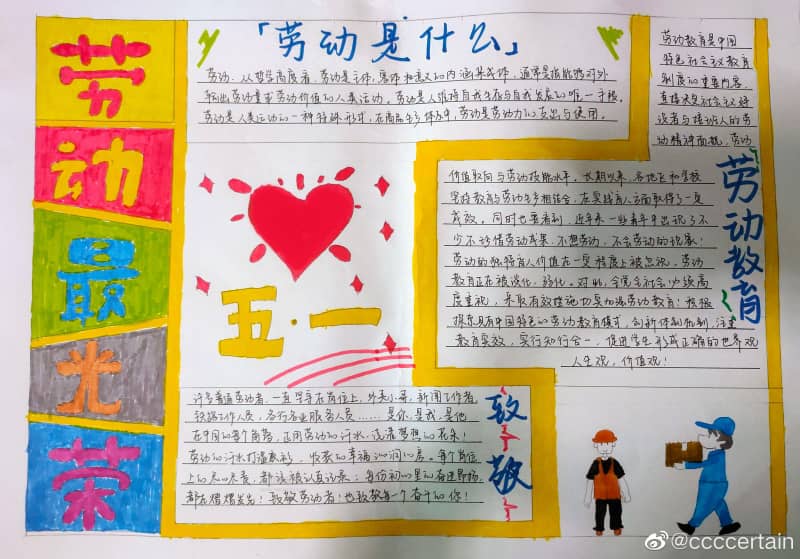 劳动最光荣
「劳动是什么」
劳动，从哲学高度看，劳动是主体、客体和意义的内涵集成体，通常是指能够对外
输出劳动量或劳动价值的人类运动。劳动是人维持自我生存与自我发展的唯一手段。
劳动是人类运动的一种特殊形式，在商品生产体系中，劳动是劳动力的支出与使用。
五·一
劳动教育是中国
特色社会主义教育
制度的重要内容，
直接决定社会主义建
设者与接班人的劳
动精神面貌，劳动
劳动教育
价值取向与劳动技能水平。长期以来，各地区和学校
坚持教育与劳动生产相结合，在实践育人方面取得了一定
成效。同时也要看到，近年来一些青少年出现了不
少不珍惜劳动成果、不想劳动、不会劳动的现象！
劳动的独特育人价值在一定程度上被忽视，劳动
教育正在被淡化、弱化。对此，全党全社会必须高
度重视，采取有效措施切实加强劳动教育！积极
探索具有中国特色的劳动教育模式，创新体制机制，注重
教育实效，实行知行合一，促进学生形成正确的世界观
人生观，价值观！
致敬
许多普通劳动者，一直坚守在岗位上，外卖小哥、新闻工作者、
铁路工作人员，各行各业服务人员……是你是我是他
在中国的每个角落，正用劳动的汗水，浇灌梦想的花朵！
劳动的汗水打湿衣衫，收获的幸福沁润心房。每个岗位
上的尽心尽责，都该被认真记录；每份初心里的奋进昂扬，
都在熠熠发光！致敬劳动者！也致敬每一个奋斗的你！
@ccccertain